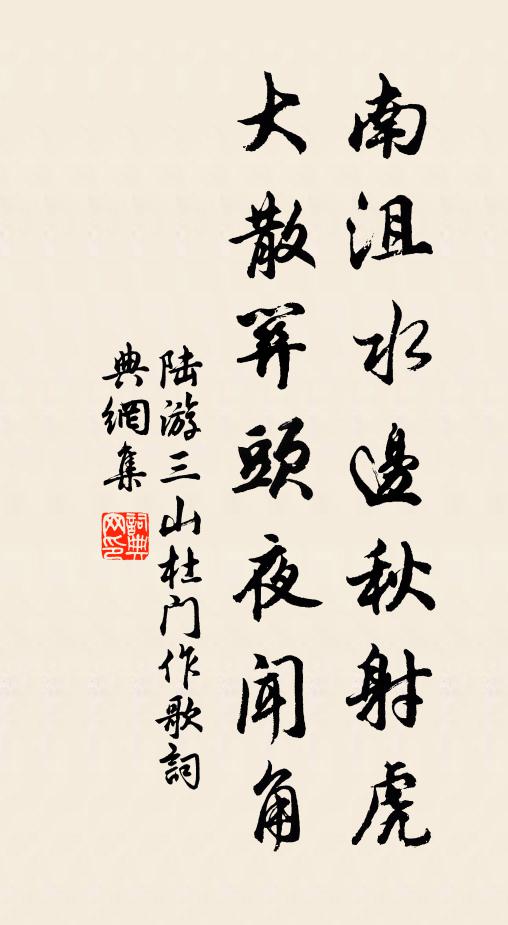 南沮水邊秋射虎
大散關頭夜聞角
陆游三山杜门作歌詞
典網集
詞典
网印